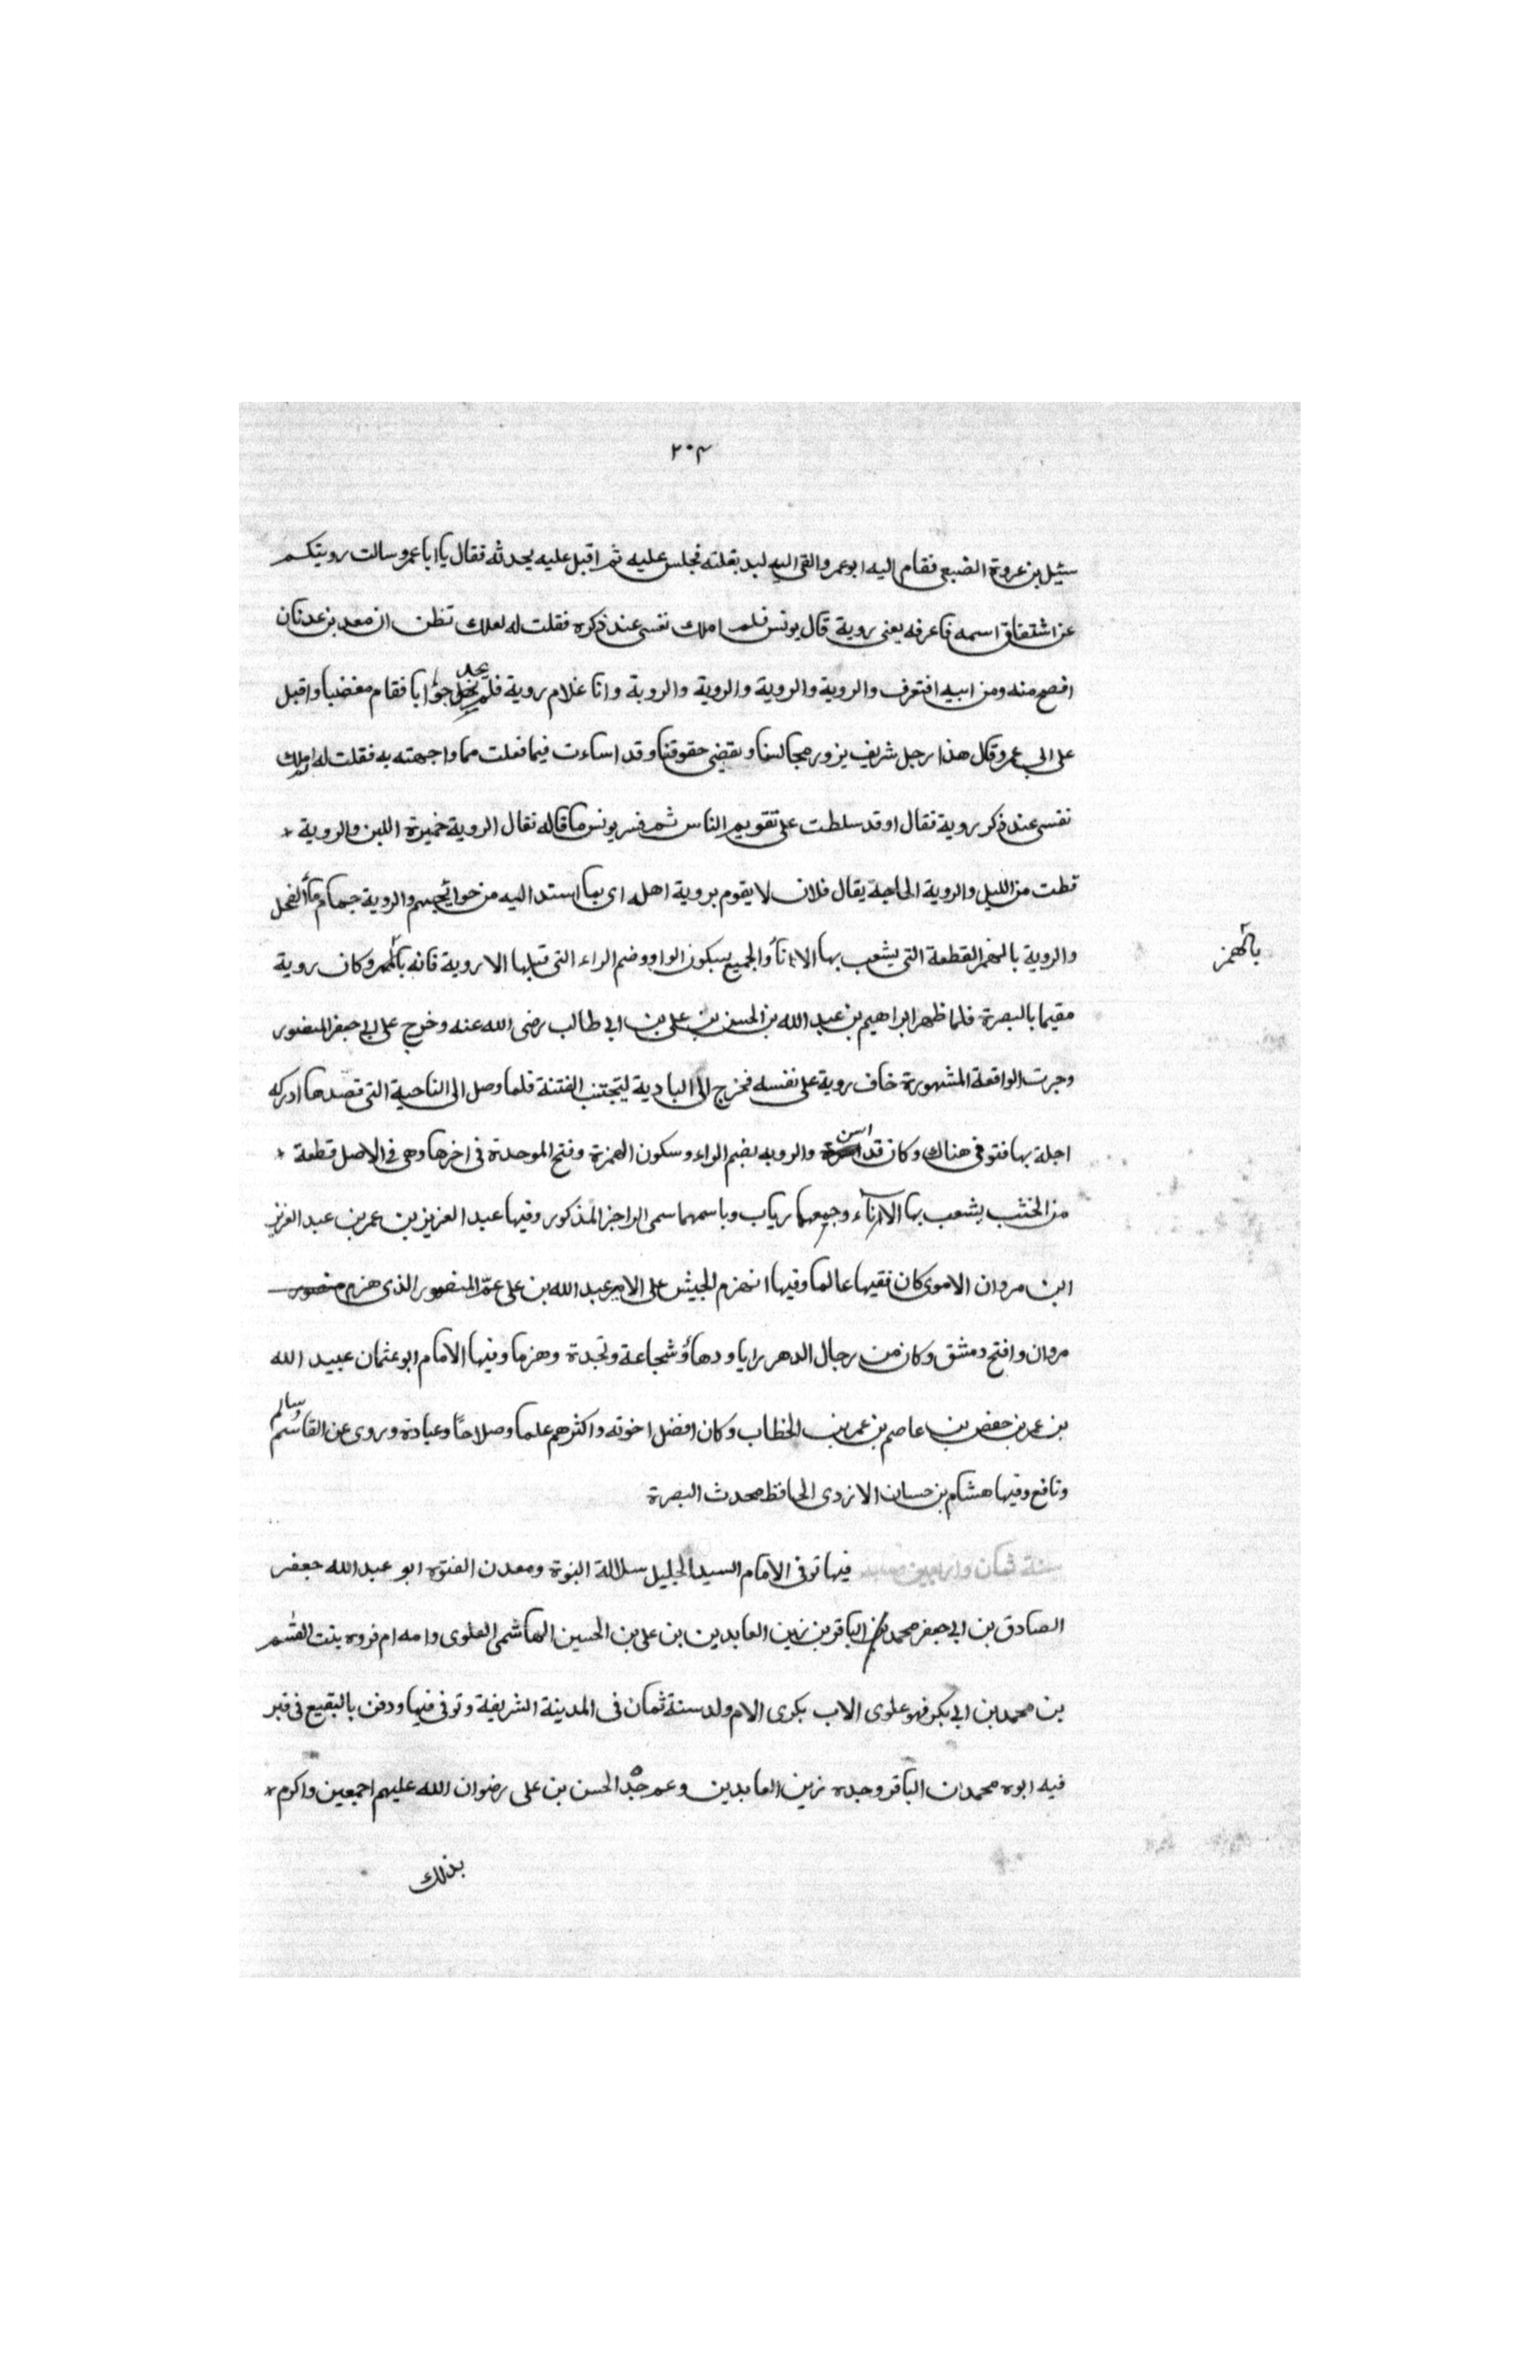 ٢٠٣
سئيل بن عروة الضبعى فقام اليه ابو عمر والقى اليه لبد بغلته فجلس عليه ثم اقبل عليه يحدثه فقال يا ابا عمرو سالت رويتكم
عن اشتقاق اسمه فا عرفه يعنى روية قال يونس فلم املك نفسى عند ذكره فقلت له لعلك تظن ان معد بن عدنان
افصح منه ومن ابيه افتعرف والروية والروية والروية والروبة وانا غلام روية فلم يحد جوابا فقام مغضبا واقبل
على ابى عمرو وقال هذا رجل شريف يزور مجالسنا ويقضى حقوقنا وقد اساءت فيما فعلت مما واجهته به فقلت له املك
نفسى عند ذكر روية فقال اوقد سلطت على تقويم الناس ثم فسر يونس ما قاله نقال الروية خميرة اللبن والروية
قطت من الليل والروية الحاجة يقال فلان لا يقوم بروية اهله اى بما استد اليه من حوائجهم والروية جمام ماء الفحل
والروية بالهمز القطعة التى يشعب بها الاناء والجميع بسكون الواو وضم الراء التى قبلها الا روية فانه بالهمز وكان روية
بالهمز
مقيما بالبصرة فلما ظهر ابراهيم بن عبد الله بن الحسن بن على بن ابى طالب رضى الله عنه وخرج على ابى جعفر المنصور
وجرت الواقعة المشهورة خاف روية على نفسه فخرج الى البادية ليتجنب الفتنة فلما وصل الى الناحية التى قصدها ادركه
اجله بها فتوفى هناك وكان قد اسن والروبه بضم الراء وسكون الهمزة وفتح الموحدة فى اخرها وهى فى الاصل قطعة
من الخشب يشعب بها الاناء وجمعها رياب وباسمها سمى الراجز المذكور وفيها عبد العزيز بن عمر بن عبد العزيز
ابن مروان الاموى كان فقيها عالما وفيها انهزم الجيش على الامير عبد الله بن على عم المنصور الذى هزم منصور
مروان وافتح دمشق وكان من رجال الدهر رايا ودهاؤ شجاعة ونجدة وهزما وفيها الامام ابو عثمان عبيد الله
بن عمر بن حفص بن عاصم بن عمر بن الخطاب وكان افضل اخوته واكثرهم علما وصلاحا وعبادة وروى عن القاسم وسالم
ونافع وفيها هشام بن حسان الازدى الحافظ محدث البصرة
سنة ثمان واربعين ومايه فيها توفى الامام السيد الجليل سلالة النبوة ومعدن الفتوه ابو عبد الله جعفر
الصادق بن ابى جعفر محمد بن الباقر بن زين العابدين بن على بن الحسين الهاشمى العلوى وامه ام فروه بنت القسم
بن محمد بن ابى بكر فهو علوى الاب بكرى الام ولد سنة ثمان فى المدينة الشريفة وتوفى فيها ودفن بالبقيع فى قبر
فيه ابوه محمد ان الباقر وجده زين العابدين وعم جده الحسن بن على رضوان الله عليهم اجمعين واكرم
بذلك